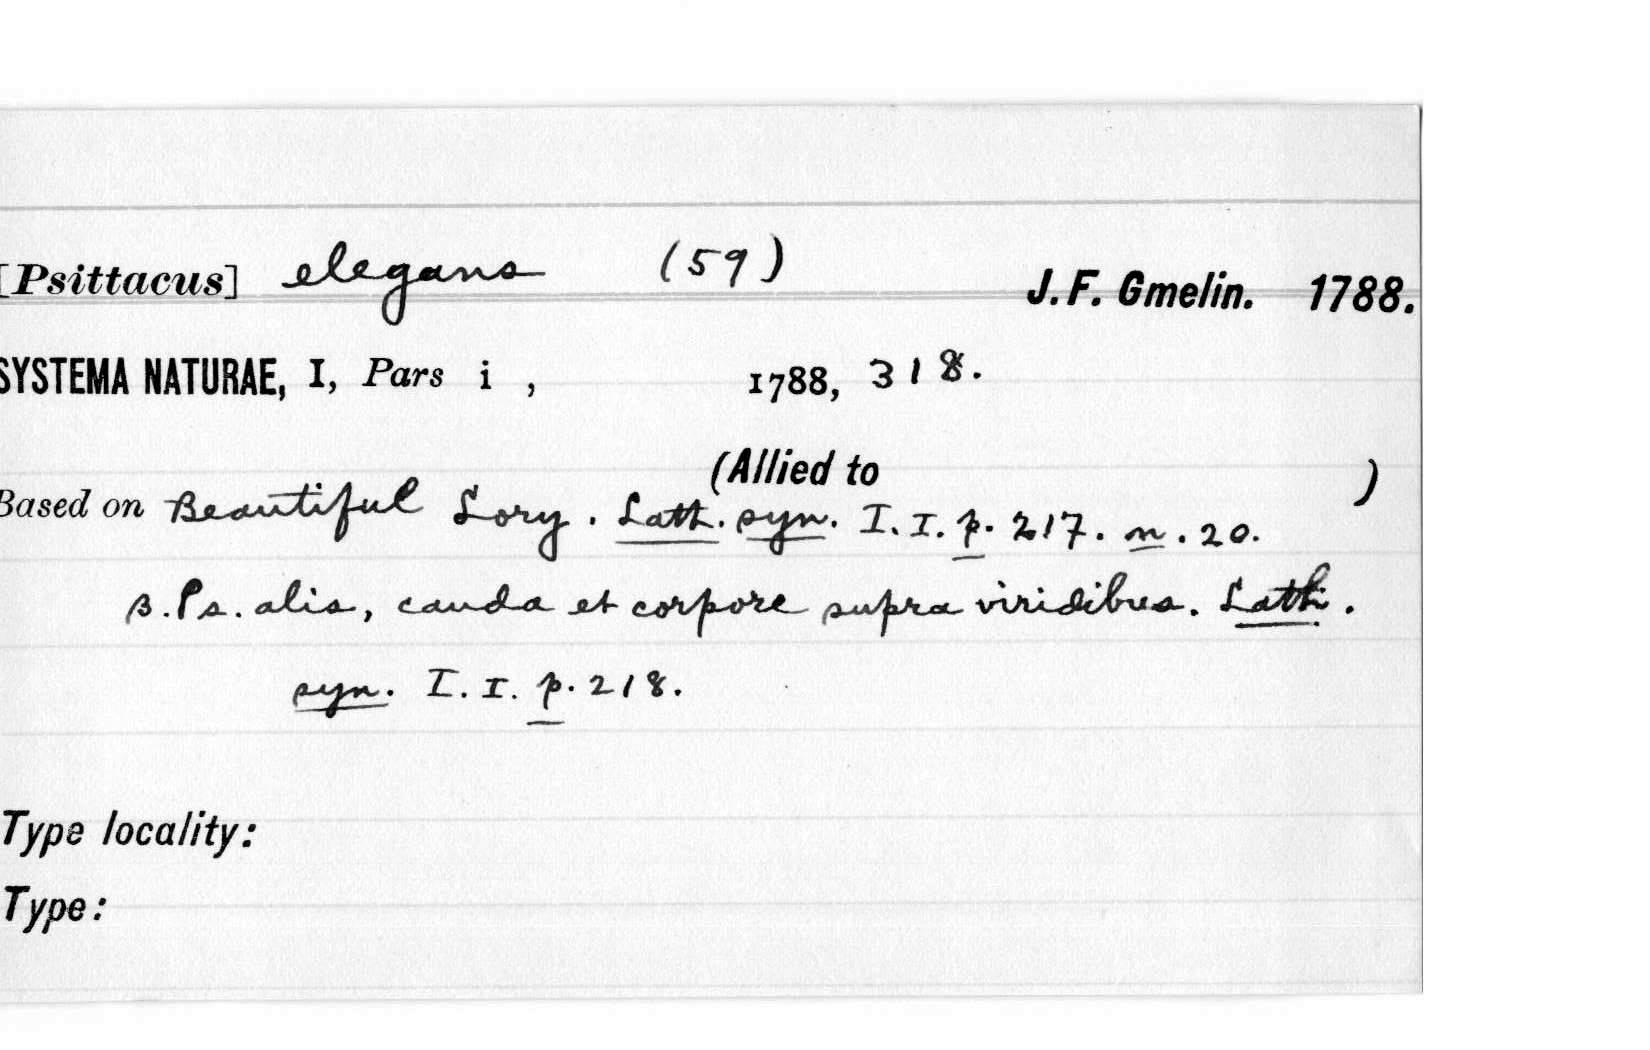 [Psittacus] elegans (59) J. F. Gmelin. 1788.
SYSTEMA NATURAE, I, Pars i , 1788, 318.
(Allied to )
Based on Beautiful Lory. Lath. syn. I. I. p. 217. n. 20.
β. Ps. alis, cauda et corpore supra viridibus. Lath.
syn. I. I. p. 218.
Type locality:
Type: